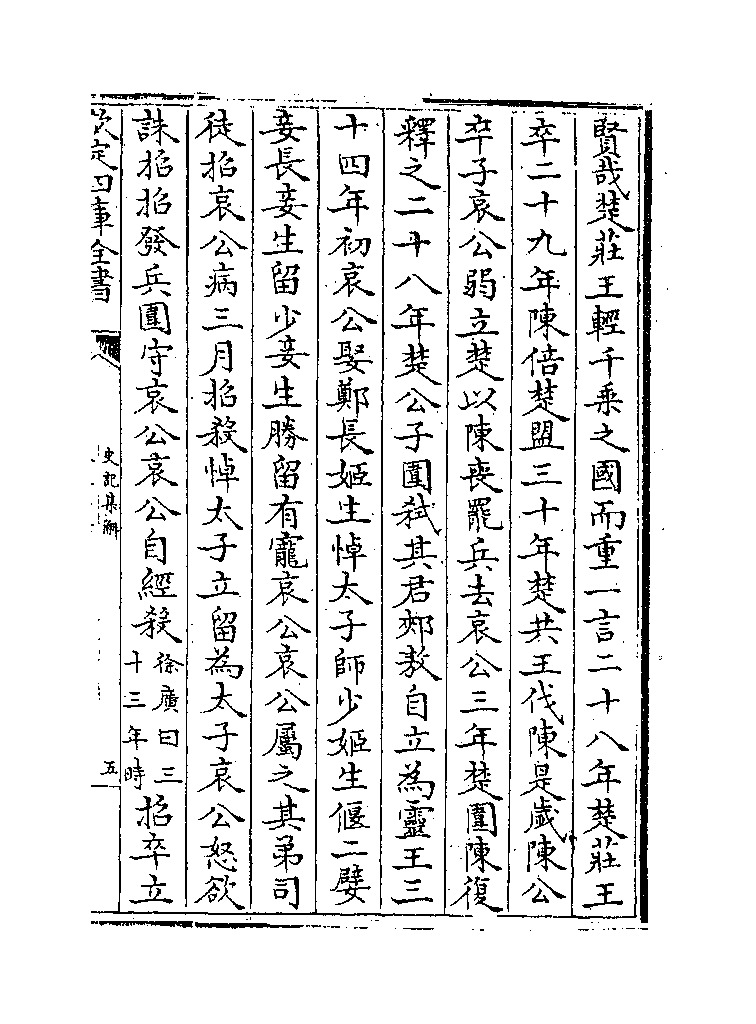 賢哉楚莊王輕千乗之國而重一言二十八年楚莊王
卒二十九年陳倍楚盟三十年楚共王伐陳是歲陳公
卒子哀公弱立楚以陳喪罷兵去哀公三年楚圍陳復
釋之二十八年楚公子圍弑其君郟敖自立為靈王三
十四年初哀公娶鄭長姬生悼太子師少姬生偃二嬖
妾長妾生留少妾生勝留有寵哀公哀公屬之其弟司
徒招哀公病三月招殺悼太子立留為太子哀公怒欲
誅招招發兵圍守哀公哀公自經殺徐廣曰三十三年時招卒立
欽定四庫全書
史記集解
五